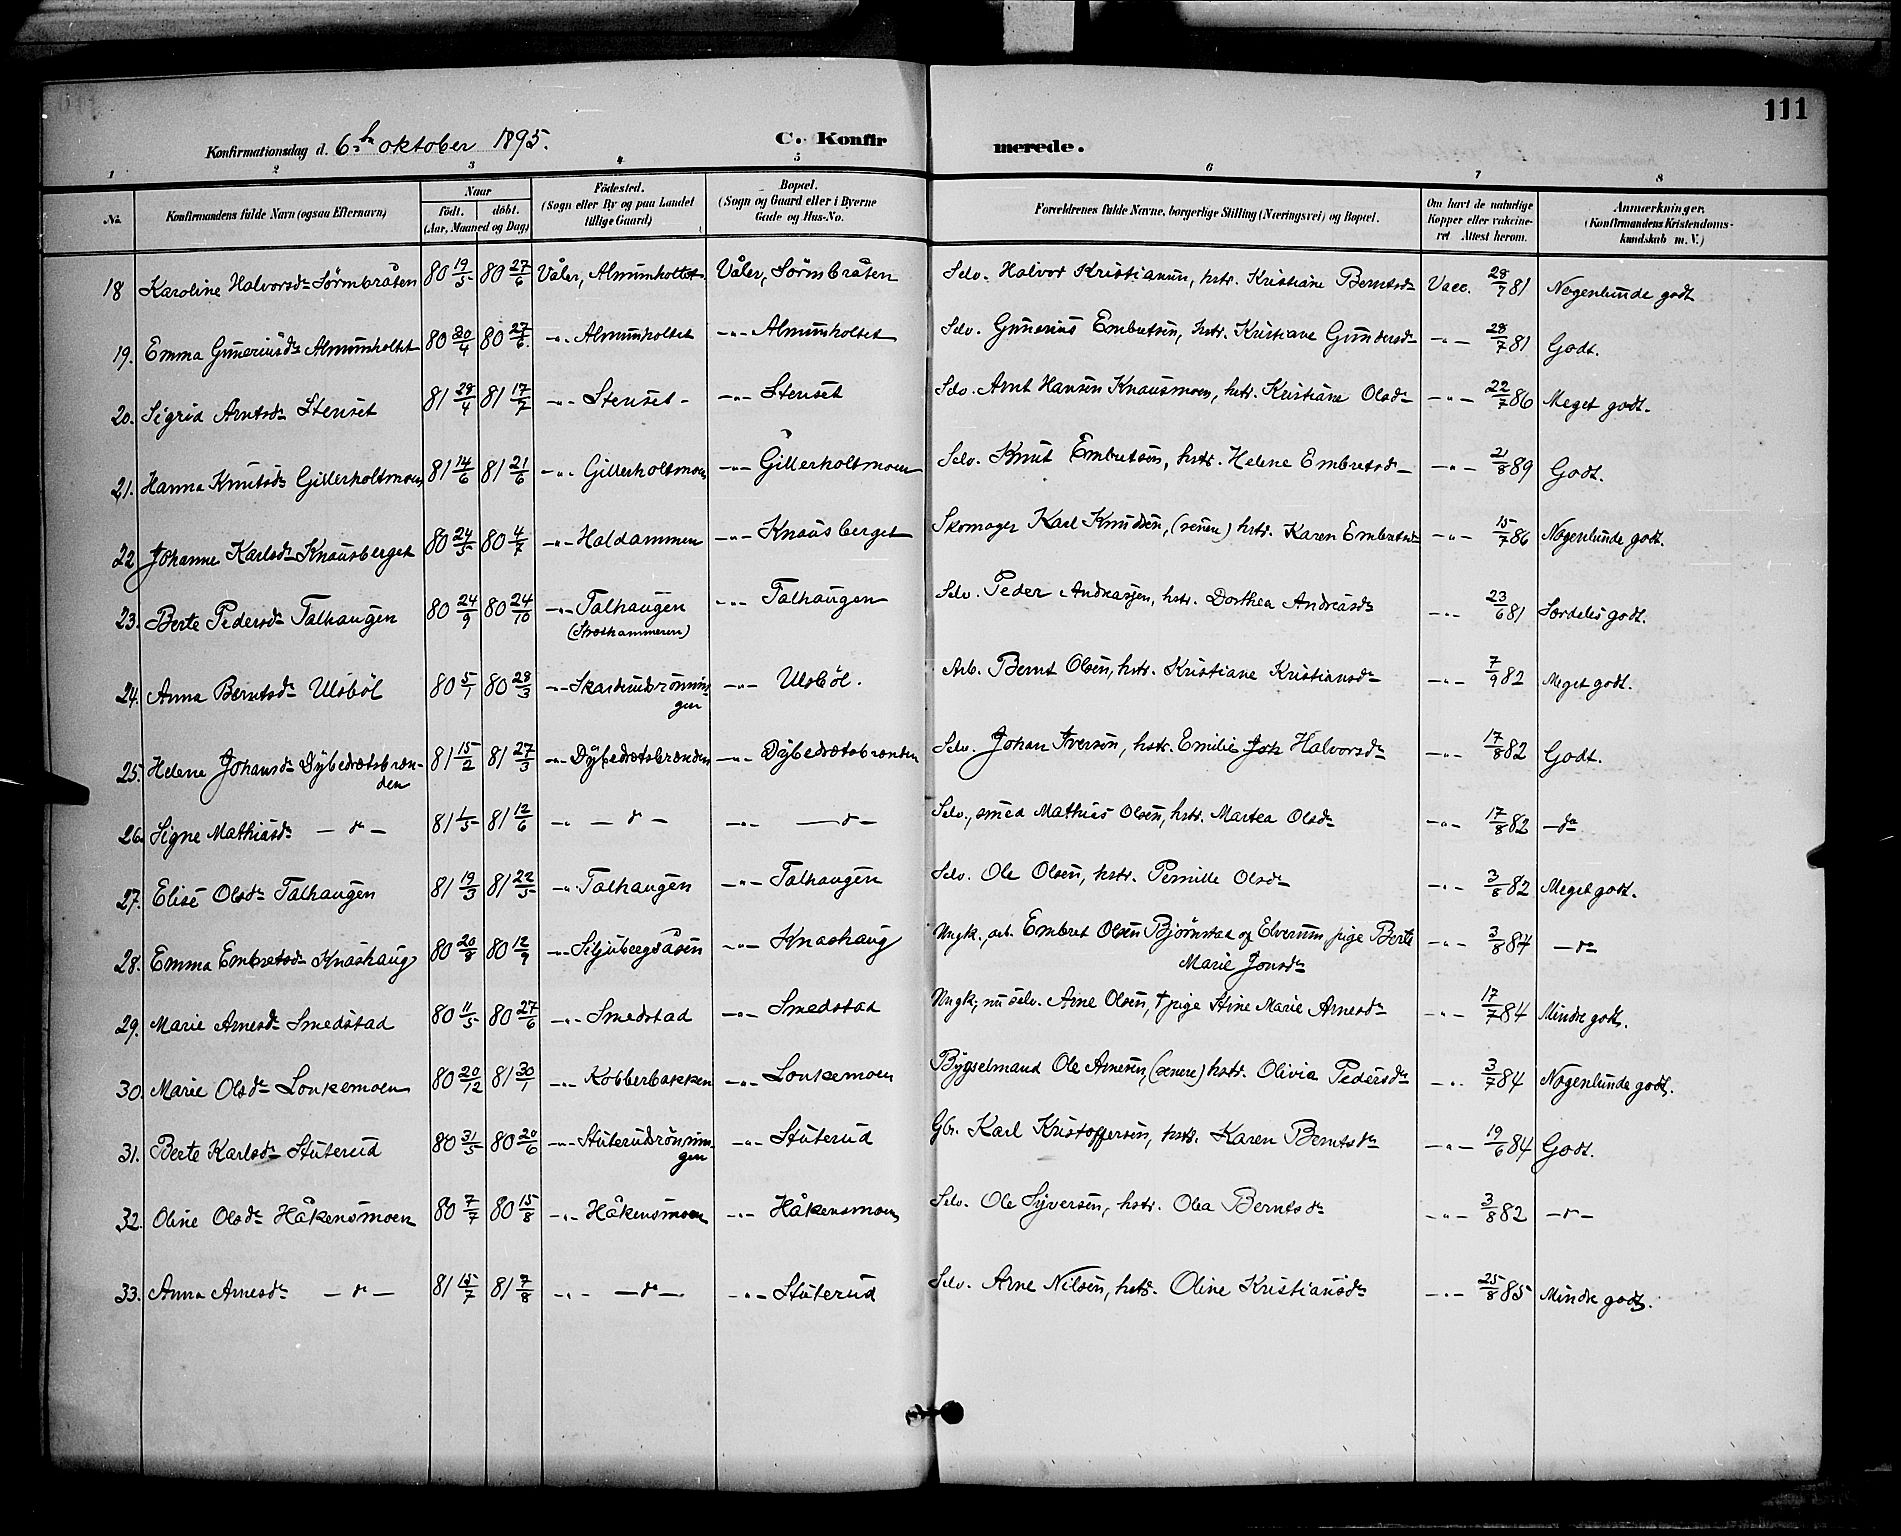 111
Konfirmationsdag d. 6te oktober 1895.
C. Konfirmerede.
1 2 3 4 5 6 7 8
No. Konfirmandens fulde Navn (ogsaa Efternavn) Naar födt. döbt. (Aar, Maaned og Dag) Födested. (Sogn eller By og paa Landet tillige Gaard) Bopæl. (Sogn og Gaard eller i Byerne Gade og Hus-No. Forældrenes fulde Navne, borgerlige Stilling (Næringsvei) og Bopæl. Om havt de naturlige Kopper eller vakcineret Attest herom. Anmærkninger. (Konfirmandens Kristendomskundskab m. V.)
18 Karoline Halvorsdr Sörmbråten 80 19/5 80 27/6 Våler, Almimholtet Våler, Sörmbråten Selv. Halvor Kristiansen, hstr. Kristiane Berntsdr Vacc. 28/7 81 Nogenlunde godt
19. Emma Guneriusdr Almimholtet 80 30/4 80 27/6. -"- Almimholtet -"- Almimholtet Selv. Gunerius Embretsen, hstr. Kristiane Gundersdr -"- 28/7 81 Godt.
20. Sigrid Arntsdr Stenset 81 28/4 81 17/7 -"- Stenset - -"- Stenset Selv. Arnt Hansen Knausmoen, hstr. Kristiane Olsdr -"- 22/7 86 Meget godt.
21. Hanna Knutsdr Gillerholtmoen 81 14/6 81 21/6 -"- Gillerholtmoen -"- Gillerholtmoen Selv. Knut Embretsen, hstr. Helene Embretsdr -"- 21/8 89 Godt.
22 Johanne Karlsdr Knausberget 80 24/5 80 4/7 -"- Haldammen -"- Knausberget Skomager Karl Knudsen, (senere) hstr. Karen Embretsdr -"- 15/7 86 Nogenlunde godt.
23. Berte Pedersdr Talhaugen 80 24/9 80 24/10 -"- Talhaugen -"- Talhaugen Selv. Peder Andreassen, hstr. Dorthea Andreasdr -"- 23/6 81 Særdeles godt.
(Stræthammeren)
24. Anna Berntsdr Ulsböl 80 5/1 80 28/3 -"- Skarderudsrönnin- -"- Ulsböl. Arb. Bernt Olsen, hstr. Kristiane Kristiansdr -"- 7/9 82 Meget godt.
gen
25. Helene Johansdr Dybedrætsbræn- 81 15/2 81 27/3 -"- Dybedrætsbrænden -"- Dybedrætsbrænden Selv. Johan Iversen, hstr. Emilie Joh Halvorsdr -"- 17/8 82 Godt.
den
26. Signe Mathiasdr - dr - 81 1/5 81 12/6 -"- - dr - -"- - dr - Selv., smed Mathias Olsen, hstr. Martea Olsdr -"- 17/8 82 - dr
27. Elise Olsdr Talhaugen 81 19/3 81 22/5 -"- Talhaugen -"- Talhaugen Selv. Ole Olsen, hstr. Pernille Olsdr -"- 3/8 82 Meget godt.
28. Emma Embretsdr Knashaug 80 20/8 80 12/9 -"- Siljubergsåsen -"- Knashaug Ungk., arb. Embret Olsen Bjørnstad og Elverum pige Berte -"- 3/8 84 - dr -
Marie Jonsdr
29. Marie Arnesdr Smedstad 80 11/5 80 27/6 -"- Smedstad -"- Smedstad Ungk, nu selv. Arne Olsen, † pige Stine Marie Arnesdr -"- 17/7 84 Mindre godt.
30. Marie Olsdr Lonkemoen 80 20/12 81 30/1 -"- Kobberbakken -"- Lonkemoen Bygselmand Ole Arnesen, (senere) hstr. Olivia Pedersdr -"- 3/7 84 Nogenlunde godt.
31. Berte Karlsdr Stuterud 80 31/5 80 20/6 -"- Stuterudsrönnin- -"- Stuterud Gbr. Karl Kristoffersen, hstr. Karen Berntsdr -"- 19/6 84 Godt.
gen
32. Oline Olsdr Håkensmoen 80 7/7 80 15/8 -"- Håkensmoen -"- Håkensmoen Selv. Ole Syversen, hstr. Olea Berntsdr -"- 3/8 82 - dr -
33. Anna Arnesdr - dr - 81 15/7 81 7/8 -"- - dr - -"- Stuterud Selv. Arne Nilsen, hstr. Oline Kristiansdr -"- 25/8 85 Mindre godt.